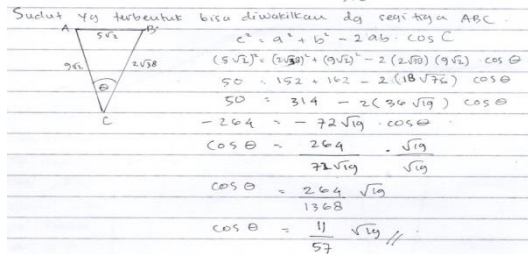 Sudut yg terbentuk bisa diwakilkan dg segitiga ABC.
A 5√2 B
c² = a² + b² - 2ab · cos C
(5√2)² = (2√38)² + (9√2)² - 2 (2√38) (9√2) · cos θ
9√2 2√38
50 = 152 + 162 - 2 (18√76) cos θ
θ
50 = 314 - 2 (36√19) cos θ
C
-264 = -72√19 · cos θ
cos θ = 264/72√19 · √19/√19
cos θ = 264/1368 √19
cos θ = 11/57 √19 //